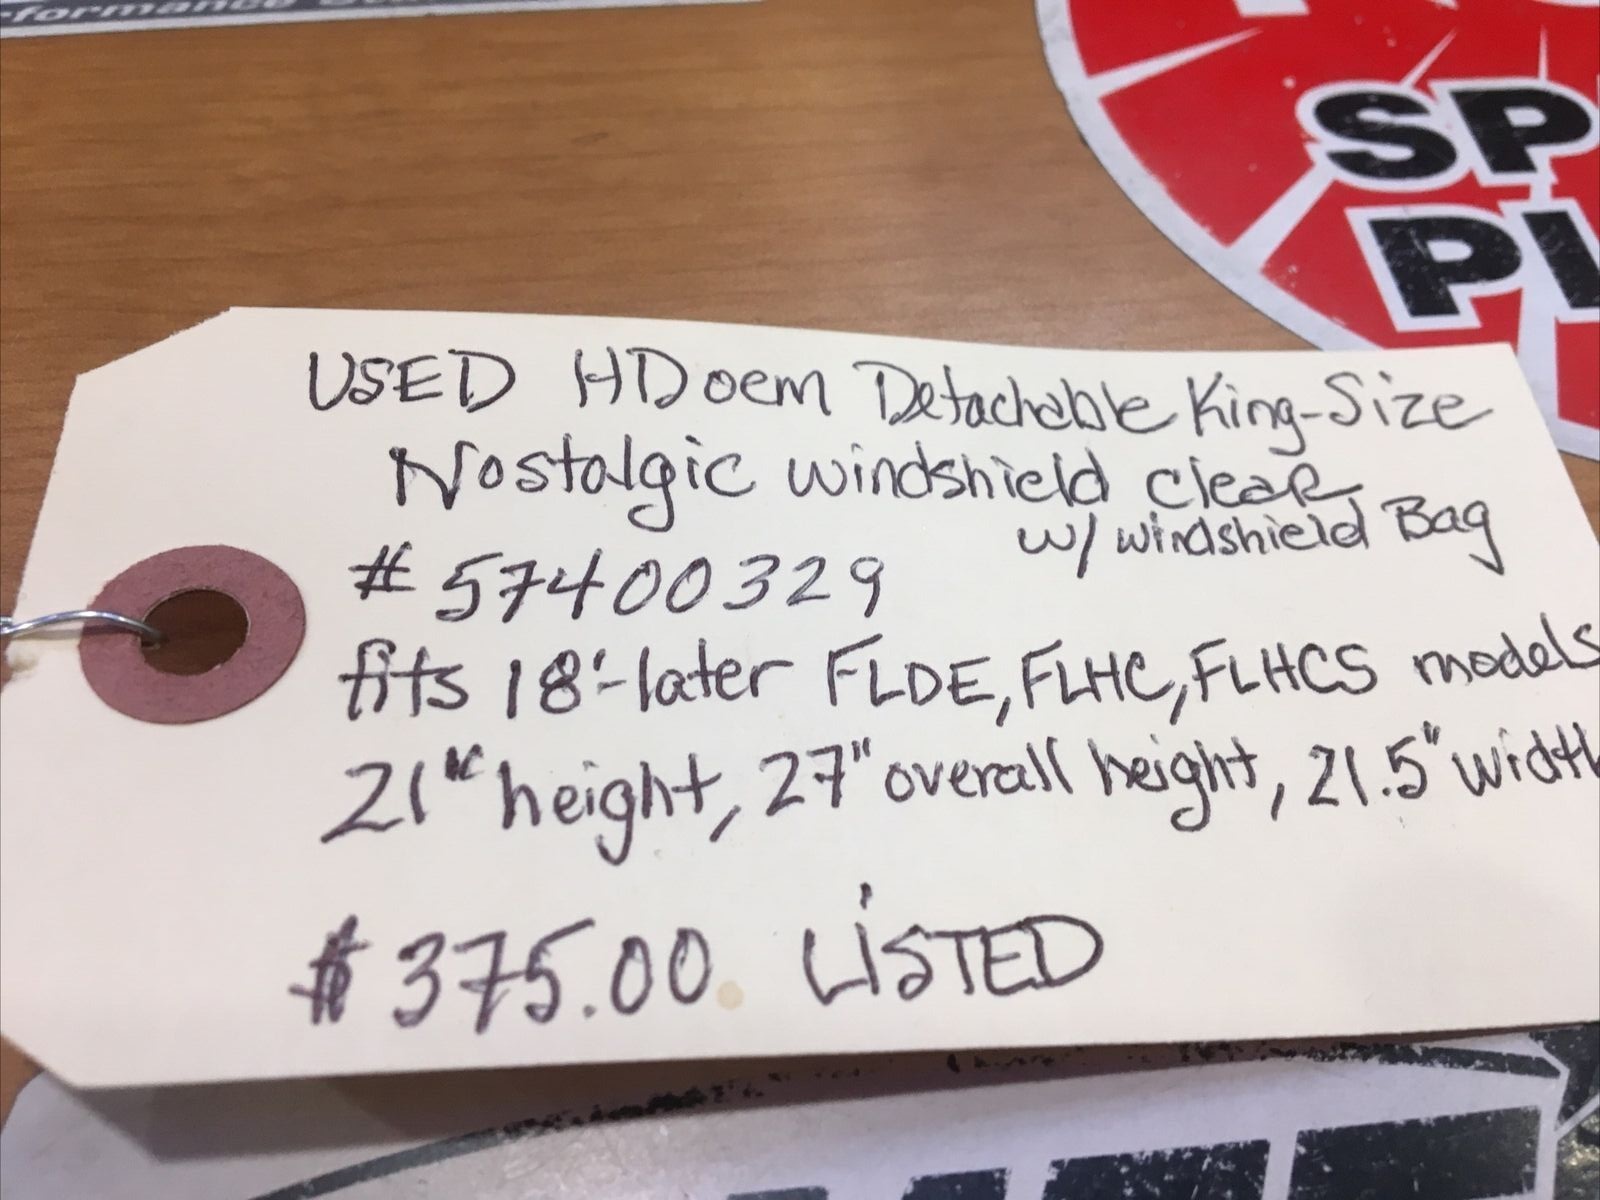 formance
SP
PI
USED HD oem Detachable King-Size
Nostalgic windshield cleaR
w/ windshield Bag
# 57400329
fits 18'-later FLDE, FLHC, FLHCS models
21" height, 27" overall height, 21.5" width
$375.00 LiSTED